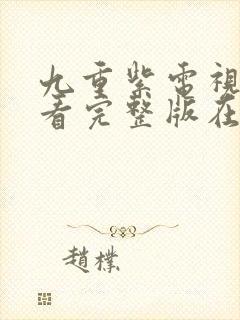 九重紫電視
看完整版在
趙樸